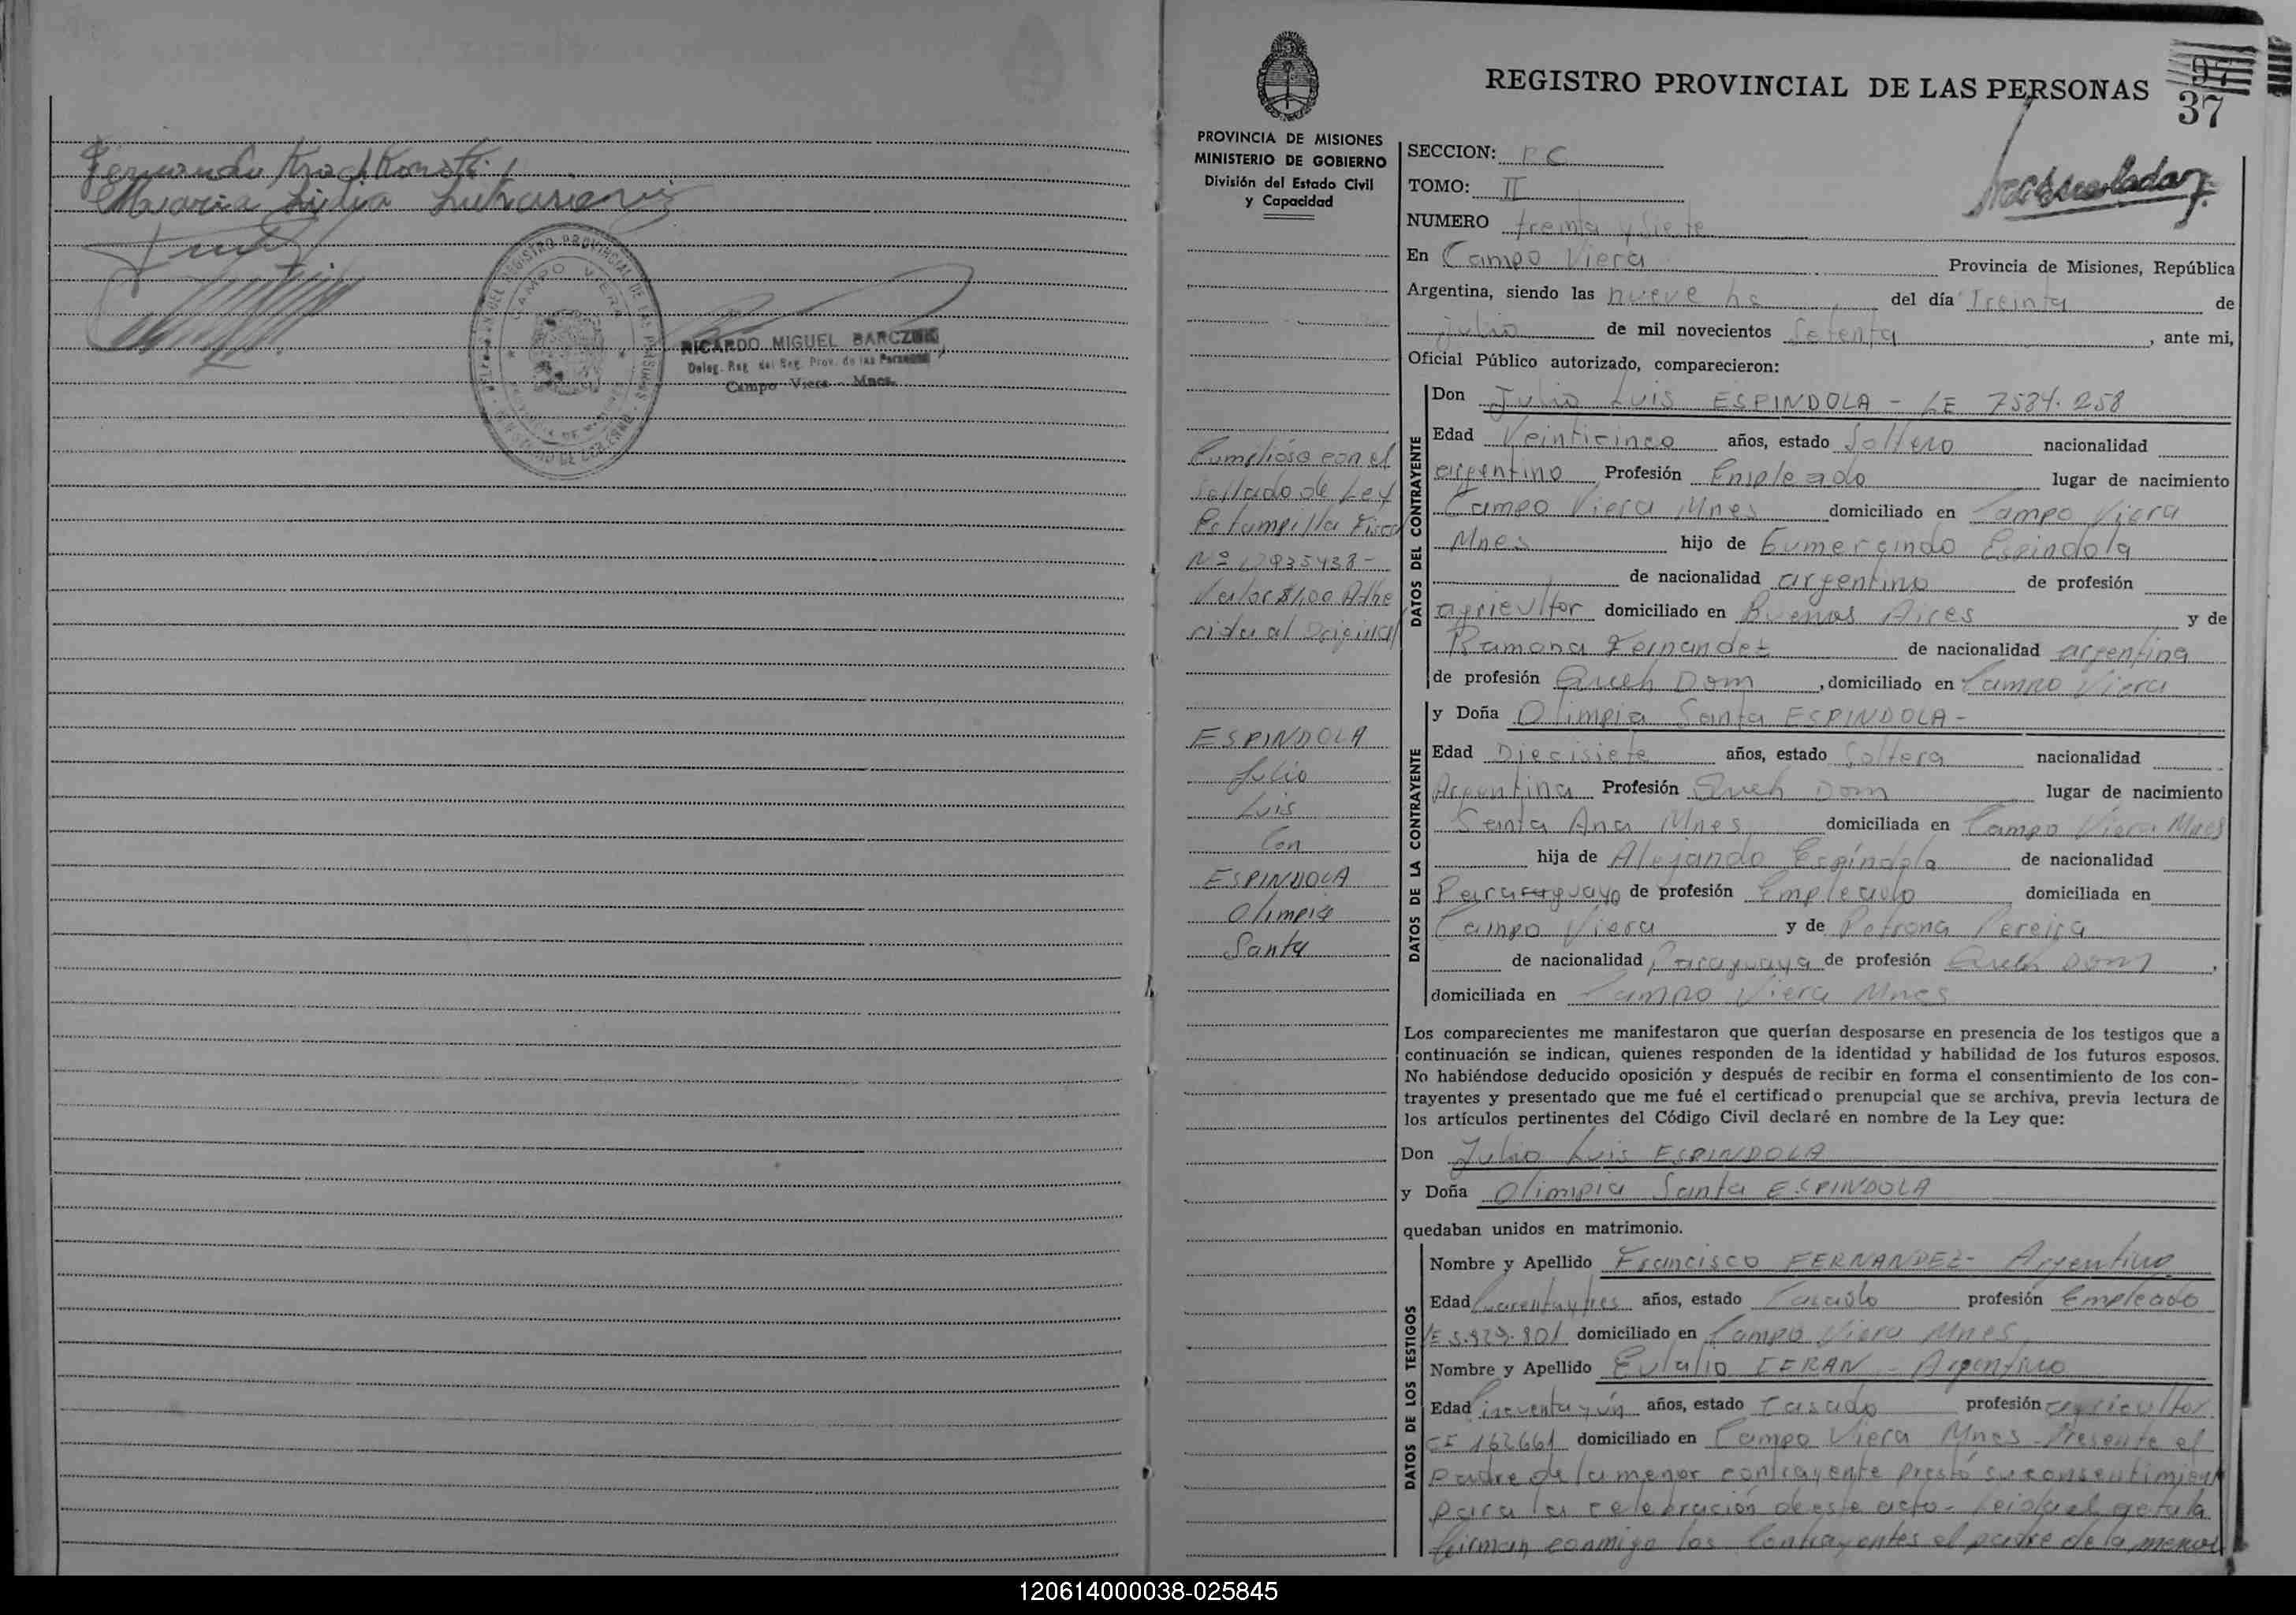 Fernando
Maria Lidia
REGISTRO PROVINCIAL DE LAS PERSONAS
CAMPO VIERA
RICARDO MIGUEL BARCZUK
Deleg. Reg. del Reg. Prov. de las Personas
Campo Viera Mnes.
REGISTRO PROVINCIAL DE LAS PERSONAS
97
37
PROVINCIA DE MISIONES
MINISTERIO DE GOBIERNO
División del Estado Civil
y Capacidad
Cumplióse con el
Sellado de Ley
Estampilla Fiscal
Valor $1,00 Adhe
rida al Original
ESPINDOLA
Julio
Luis
Con
ESPINDOLA
Olimpia
Santa
SECCION:
TOMO: II
NUMERO treinta y siete
En Campo Viera Provincia de Misiones, República
Argentina, siendo las nueve hs del día Treinta de
Julio de mil novecientos Setenta, ante mi,
Oficial Público autorizado, comparecieron:
DATOS DEL CONTRAYENTE
Don Julio Luis ESPINDOLA - LE 7584.258
Edad Veinticinco años, estado Soltero nacionalidad
argentino Profesión Empleado lugar de nacimiento
Campo Viera Mnes domiciliado en Campo Viera
Mnes hijo de Gumercindo Espindola
de nacionalidad argentino de profesión
agricultor domiciliado en Buenos Aires y de
Ramona Fernandez de nacionalidad argentina
de profesión Queh Dom, domiciliado en Campo Viera
DATOS DE LA CONTRAYENTE
y Doña Olimpia Santa ESPINDOLA -
Edad Diecisiete años, estado Soltera nacionalidad
Argentina Profesión Queh Dom lugar de nacimiento
Santa Ana Mnes domiciliada en Campo Viera Mnes
hija de Alejando Espíndola de nacionalidad
de profesión Empleado domiciliada en
Campo Viera y de Petrona Pereira
de nacionalidad Paraguaya de profesión Queh Dom,
domiciliada en Campo Viera Mnes
Los comparecientes me manifestaron que querían desposarse en presencia de los testigos que a
continuación se indican, quienes responden de la identidad y habilidad de los futuros esposos.
No habiéndose deducido oposición y después de recibir en forma el consentimiento de los con-
trayentes y presentado que me fué el certificado prenupcial que se archiva, previa lectura de
los artículos pertinentes del Código Civil declaré en nombre de la Ley que:
Don Julio Luis ESPINDOLA
y Doña Olimpia Santa ESPINDOLA
quedaban unidos en matrimonio.
DATOS DE LOS TESTIGOS
Nombre y Apellido Francisco FERNANDEZ - Argentino
Edad Cuarentaytres años, estado Casado profesión Empleado
domiciliado en Campo Viera Mnes
Nombre y Apellido Eulalio TERAN - Argentino
Edad Cincuenta y ún años, estado Casado profesión agricultor
CI 162661 domiciliado en Campo Viera Mnes - Presente el
padre de la menor contrayente prestó su consentimient
para la celebración de este acto - Leida el acta la
firman conmigo los Contrayentes el padre de la menor
120614000038-025845